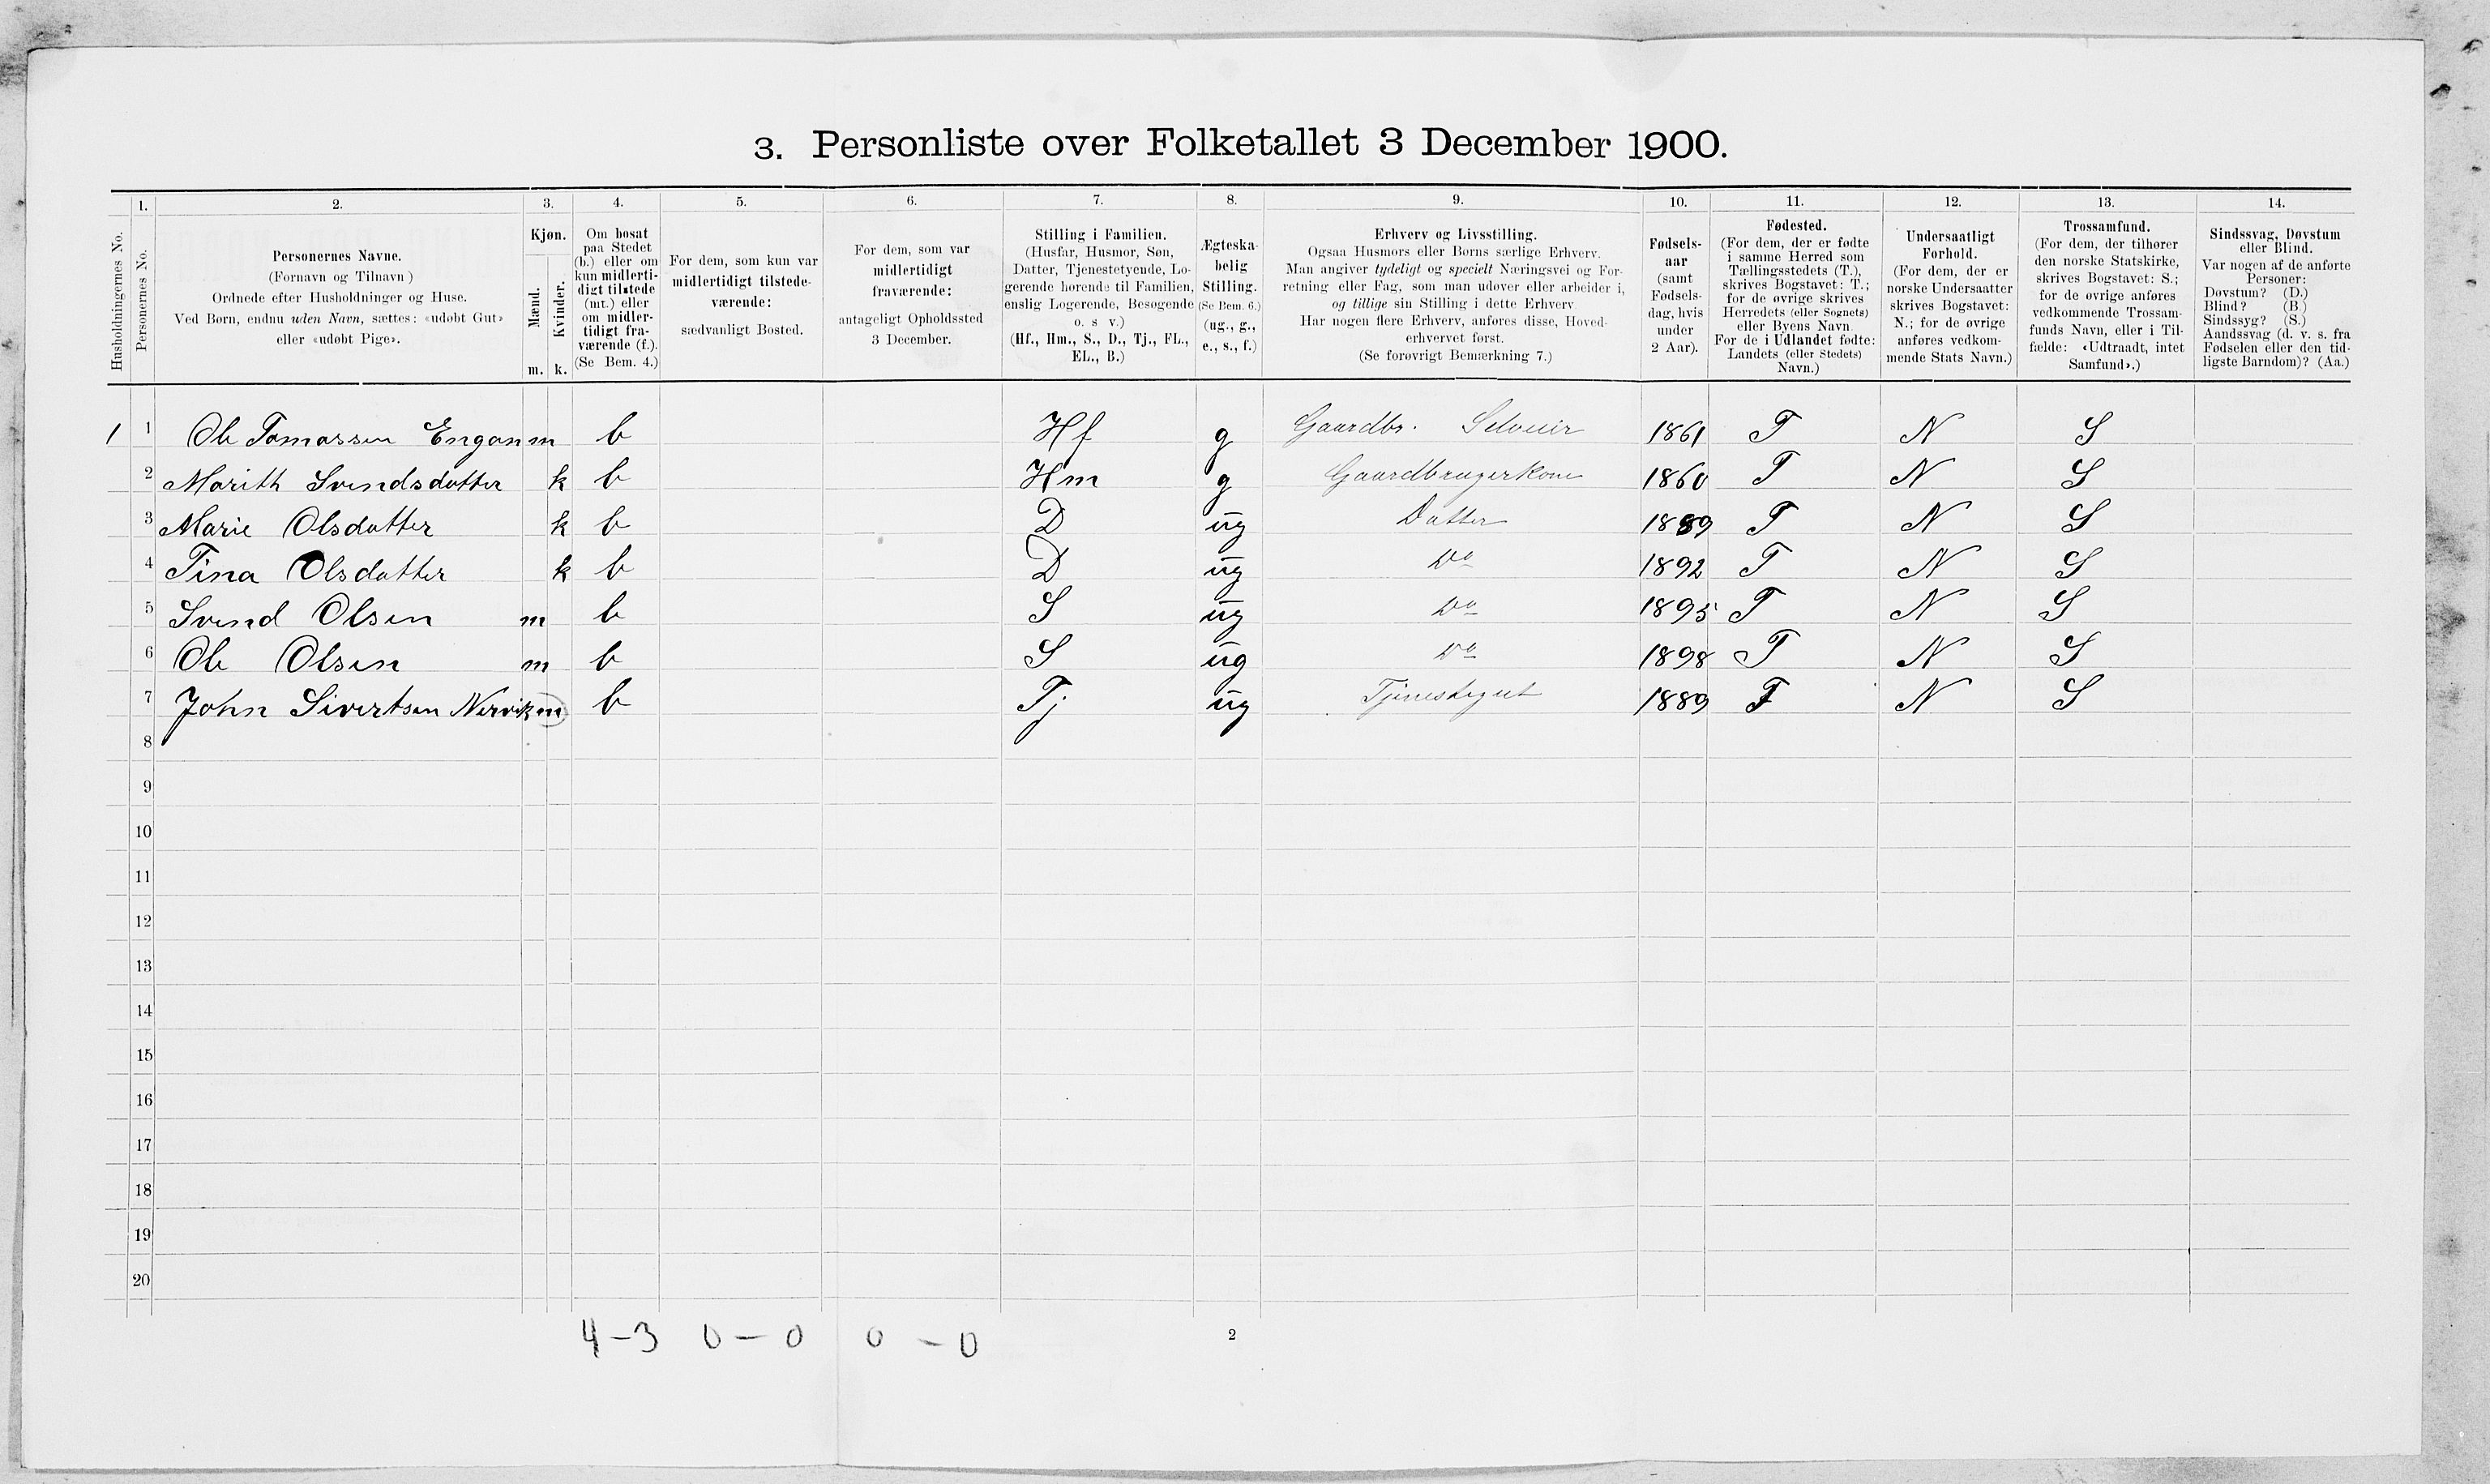 3. Personliste over Folketallet 3 December 1900.
Husholdningernes No.
1.
Personernes No.
2.
Personernes Navne.
(Fornavn og Tilnavn)
Ordnede efter Husholdninger og Huse.
Ved Børn, endnu uden Navn, sættes: «udøbt Gut»
eller «udøbt Pige».
3.
Kjøn.
Mænd.
Kvinder.
m. k.
4.
Om bosat
paa Stedet
(b.) eller om
kun midlerti-
digt tilstede
(mt.) eller
om midler-
tidigt fra-
værende (f.).
(Se Bem. 4.)
5.
For dem, som kun var
midlertidigt tilstede-
værende:
sædvanligt Bosted.
6.
For dem, som var
midlertidigt
fraværende:
antageligt Opholdssted
3 December.
7.
Stilling i Familien.
(Husfar, Husmor, Søn,
Datter, Tjenestetyende, Lo-
gerende hørende til Familien,
enslig Logerende, Besøgende
o. s v.)
(Hf., Hm., S., D., Tj., FL.,
EL., B.)
8.
Ægteska-
belig
Stilling.
(Se Bem. 6.)
(ug., g.,
e., s., f.)
9.
Erhverv og Livsstilling.
Ogsaa Husmors eller Børns særlige Erhverv.
Man angiver tydeligt og specielt Næringsvei og For-
retning eller Fag, som man udøver eller arbeider i,
og tillige sin Stilling i dette Erhverv
Har nogen flere Erhverv, anføres disse, Hoved-
erhvervet først.
(Se forøvrigt Bemærkning 7.)
10.
Fødsels-
aar
(samt
Fødsels-
dag, hvis
under
2 Aar).
11.
Fødested.
(For dem, der er fødte
i samme Herred som
Tællingsstedets (T.),
skrives Bogstavet: T.;
for de øvrige skrives
Herredets (eller Sognets)
eller Byens Navn
For de i Udlandet fødte:
Landets (eller Stedets)
Navn.)
12.
Undersaatligt
Forhold.
(For dem, der er
norske Undersaatter
skrives Bogstavet:
N.; for de øvrige
anføres vedkom-
mende Stats Navn.)
13.
Trossamfund.
(For dem, der tilhører
den norske Statskirke,
skrives Bogstavet: S.;
for de øvrige anføres
vedkommende Trossam-
funds Navn, eller i Til-
fælde: «Udtraadt, intet
Samfund».)
14.
Sindssvag, Døvstum
eller Blind.
Var nogen af de anførte
Personer:
Døvstum? (D.)
Blind? (B)
Sindssyg? (S.)
Aandssvag (d. v. s. fra
Fødselen eller den tid-
ligste Barndom)? (Aa.)
1 1 Ole Tomassen Engan m b Hf g Gaardbr. Selveier 1861 T N S
2 Marith Svendsdatter k b Hm g Gaardbrugerkone 1860 T N S
3 Marie Olsdatter k b D ug Datter 1889 T N S
4 Tina Olsdatter k b D ug Do 1892 T N S
5 Svend Olsen m b S ug Do 1895 T N S
6 Ole Olsen m b S ug Do 1898 T N S
7 John Sivertsen Nervik m b Tj ug Tjenestegut 1889 T N S
8
9
10
11
12
13
14
15
16
17
18
19
20
4-3 0-0 0-0
2